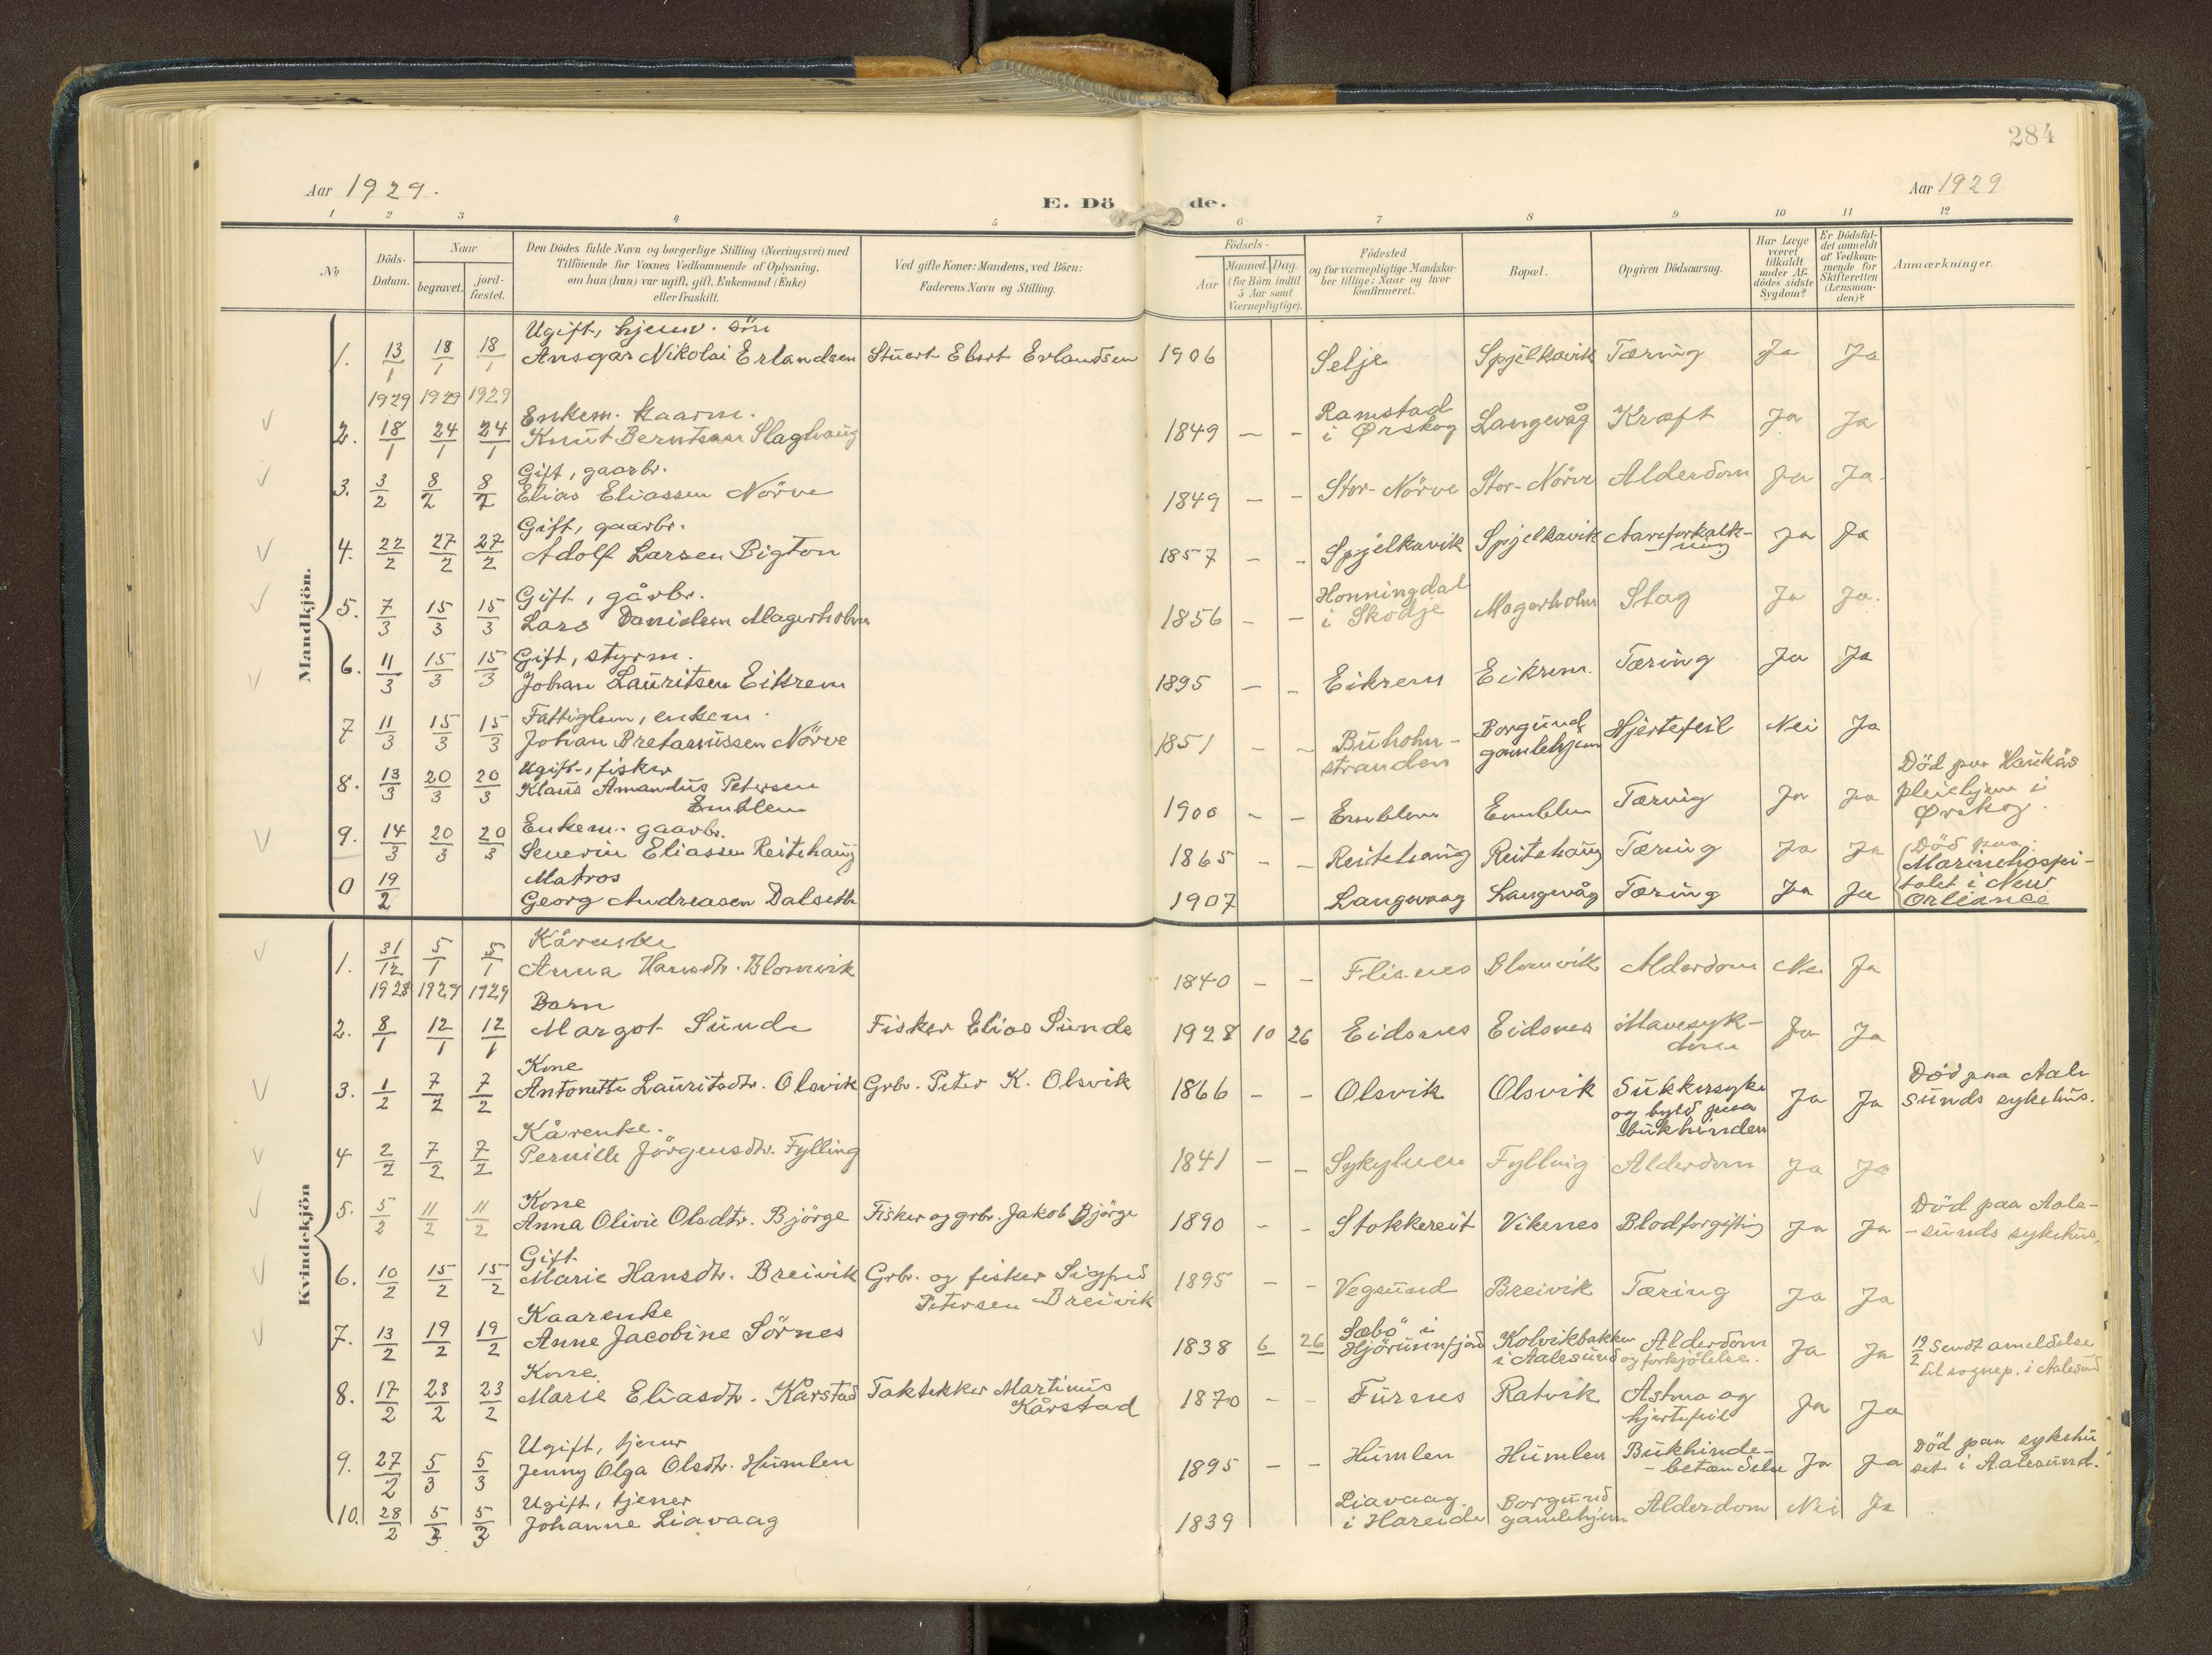 284
Aar 1929.
E. Dö de.
Aar 1929
1 2 3 4 5 6 7 8 9 10 11 12
№
Döds-
Datum.
Naar
begravet.
jord-
fæstet.
Den Dödes fulde Navn og borgerlige Stilling (Næringsvei) med
Tilföiende for Voxnes Vedkommende af Oplysning,
om han (hun) var ugift, gift, Enkemand (Enke)
eller fraskilt.
Ved gifte Koner: Mandens, ved Börn:
Faderens Navn og Stilling.
Födsels-
Aar
Maaned. Dag.
(for Börn indtil
5 Aar samt
Værnepligtige).
Födested
og for værnepligtige Mandska-
ber tillige: Naar og hvor
konfirmeret.
Bopæl.
Opgiven Dödsaarsag.
Har Læge
været
tilkaldt
under Af-
dödes sidste
Sygdom?
Er Dödsfal-
det anmeldt
af Vedkom-
mende for
Skifteretten
(Lensman-
den)?
Anmærkninger.
Mandkjön.
Ugift, hjemv. sön
1. 13/1 18/1 18/1 Ansgar Nikolai Erlandsen Stuert Ebert Erlandsen 1906 Selje Spjelkavik Tæring Ja Ja
1929 1929 1929
Enkem. kaarm. Ramstad
2. 18/1 24/1 24/1 Knut Berntsen Slaghaug 1849 — - i Ørskog Langevåg Kræft Ja Ja
Gift, gaarbr.
3. 3/2 8/2 8/2 Elias Eliassen Nörve 1849 — - Stor-Nörve Stor-Nörve Alderdom Ja Ja.
Gift, gaarbr.
4. 22/2 27/2 27/2 Adolf Larsen Bigton 1857 - - Spjelkavik Spjelkavik Aareforkalk- Ja Ja
-ning
Gift, gårbr. Honningdal
5. 7/3 15/3 15/3 Lars Danielsen Magerholm 1856 - - i Skodje Magerholm Slag Ja Ja.
Gift, styrm.
6. 11/3 15/3 15/3 Johan Lauritsen Eikrem 1895 — - Eikrem Eikrem. Tæring Ja Ja
Fattiglem, enkem. Borgund
7 11/3 15/3 15/3 Johan Nörve 1851 - - Buholm- gamlehjem Hjertefeil Nei Ja
stranden
Ugift, fisker Död paa Haukås
8. 13/3 20/3 20/3 Klaus Amandus Petersen pleiehjem i
Emblem 1900 - - Emblem Emblem Tæring Ja Ja Ørskog.
Enkem. gaarbr.
9. 14/3 20/3 20/3 Severin Eliassen Reitehaug 1865 - - Reitehaug Reitehaug Tæring Ja Ja Död paa
Matros Marinehospi-
0 19/2 Georg Andreasen Dalseth 1907 Langevaag Langevåg Tæring Ja Ja talet i New
Orleance
Kvindekjön
Kårenke
1. 31/12 5/1 5/1 Anna Hansdtr. Blomvik 1840 - - Flisnes Blomvik Alderdom Nei Ja
1928 1929 1929
Barn
2. 8/1 12/1 12/1 Margot Sunde Fisker Elias Sunde 1928 10 26 Eidsnes Eidsnes Mavesyk- Ja Ja
dom
Kone
3. 1/2 7/2 7/2 Antonette Lauritsdtr. Olsvik Grbr. Peter K. Olsvik 1866 - - Olsvik Olsvik Sukkersyke Ja Ja Död paa Aale
og byld paa sunds sykehus.
bukhinden
Kårenke.
4 2/2 7/2 7/2 Pernille Jörgensdtr. Fylling 1841 - - Sykylven Fylling Alderdom Ja Ja
Kone
5. 5/2 11/2 11/2 Anna Olivie Olsdtr. Björge Fisker og grbr. Jakob Björge 1890 - - Stokkereit Vikenes Blodforgifting Ja Ja Död paa Aale-
-sunds sykehus.
Gift
6. 10/2 15/2 15/2 Marie Hansdtr. Breivik Grbr. og fisker Sigfred 1895 - - Vegsund Breivik Tæring Ja Ja
Petersen Breivik
Kaarenke Sæbö i
7. 13/2 19/2 19/2 Anne Jacobine Sörnes 1838 6 26 Hjörunnfjord Kolvikbakken Alderdom Ja Ja 19/2 Sendt ameldelse
i Aalesund og forkjölelse. til sognep. i Aalesund
Kone.
8. 17/2 23/2 23/2 Marie Eliasdtr. Kårstad Taktekker Martinus 1870 - - Furnes Ratvik Astma og Ja Ja
Kårstad hjertefeil
Ugift, tjener
9. 27/2 5/3 5/3 Jenny Olga Olsdtr. Humlen 1895 - - Humlen Humlen Bukhinde- Ja Ja Död paa sykehu
-betændelse set i Aalesund.
Ugift, tjener Liavaag. Borgund
10. 28/2 5/3 5/3 Johanne Liavaag 1839 i Hareide gamlehjem Alderdom Nei Ja